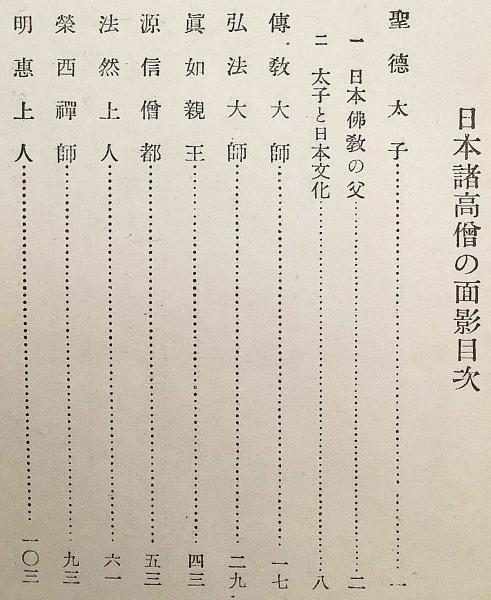 日本諸高僧の面影目次
聖德太子……………………一
一 日本佛敎の父……………………二
二 太子と日本文化……………………八
傳敎大師……………………一七
弘法大師……………………二九
眞如親王……………………四三
源信僧都……………………五三
法然上人……………………六一
榮西禪師……………………九三
明惠上人……………………一〇三